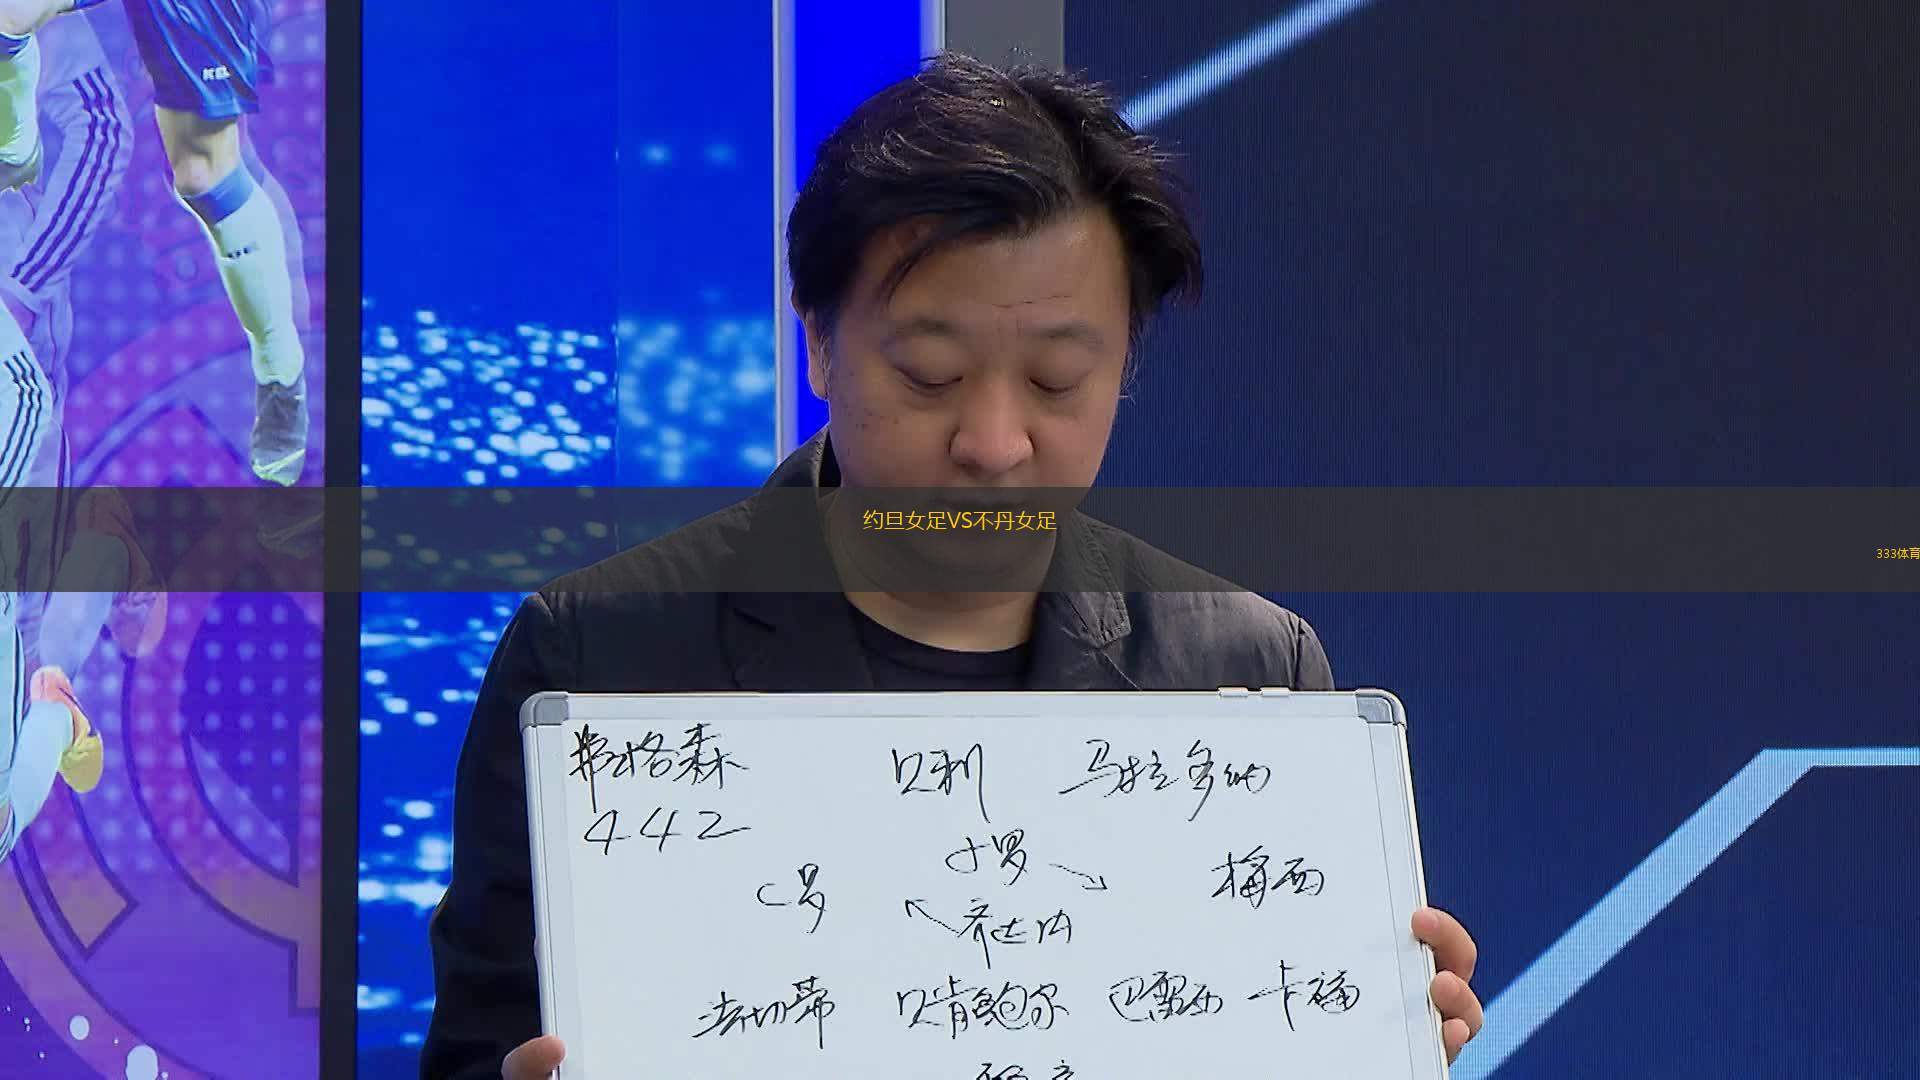 约旦女足VS不丹女足
333体育
弗格森 贝利 马拉多纳
442
小罗
C罗 梅西
齐达内
法切蒂 贝肯鲍尔 巴雷西 卡福